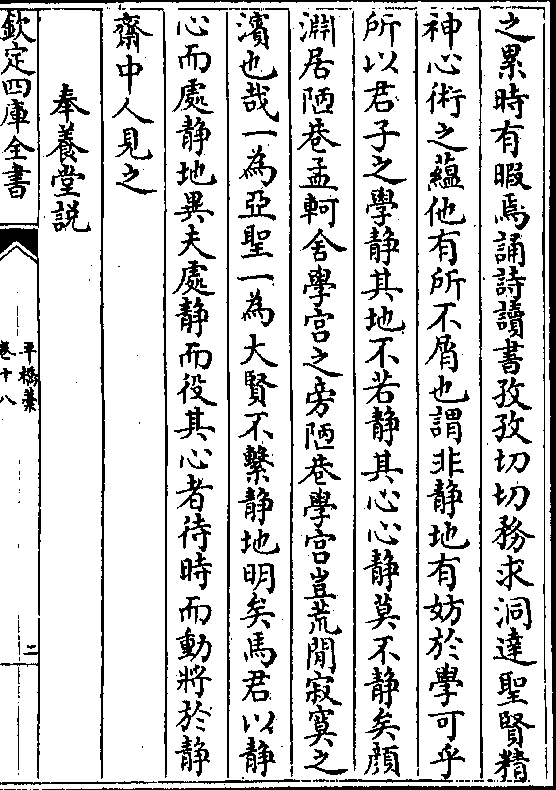 之累時有暇焉誦詩讀書孜孜切切務求洞達聖賢精
神心術之蘊他有所不屑也謂非靜地有妨於學可乎
所以君子之學靜其地不若靜其心心靜莫不靜矣顔
淵居陋巷孟軻舍學宮之旁陋巷學宮豈荒閒寂寞之
濱也哉一為亞聖一為大賢不繫靜地明矣馬君以靜
心而處靜地異夫處靜而役其心者待時而動將於靜
齋中人見之
奉養堂説
欽定四庫全書
平橋藁
卷十八
二